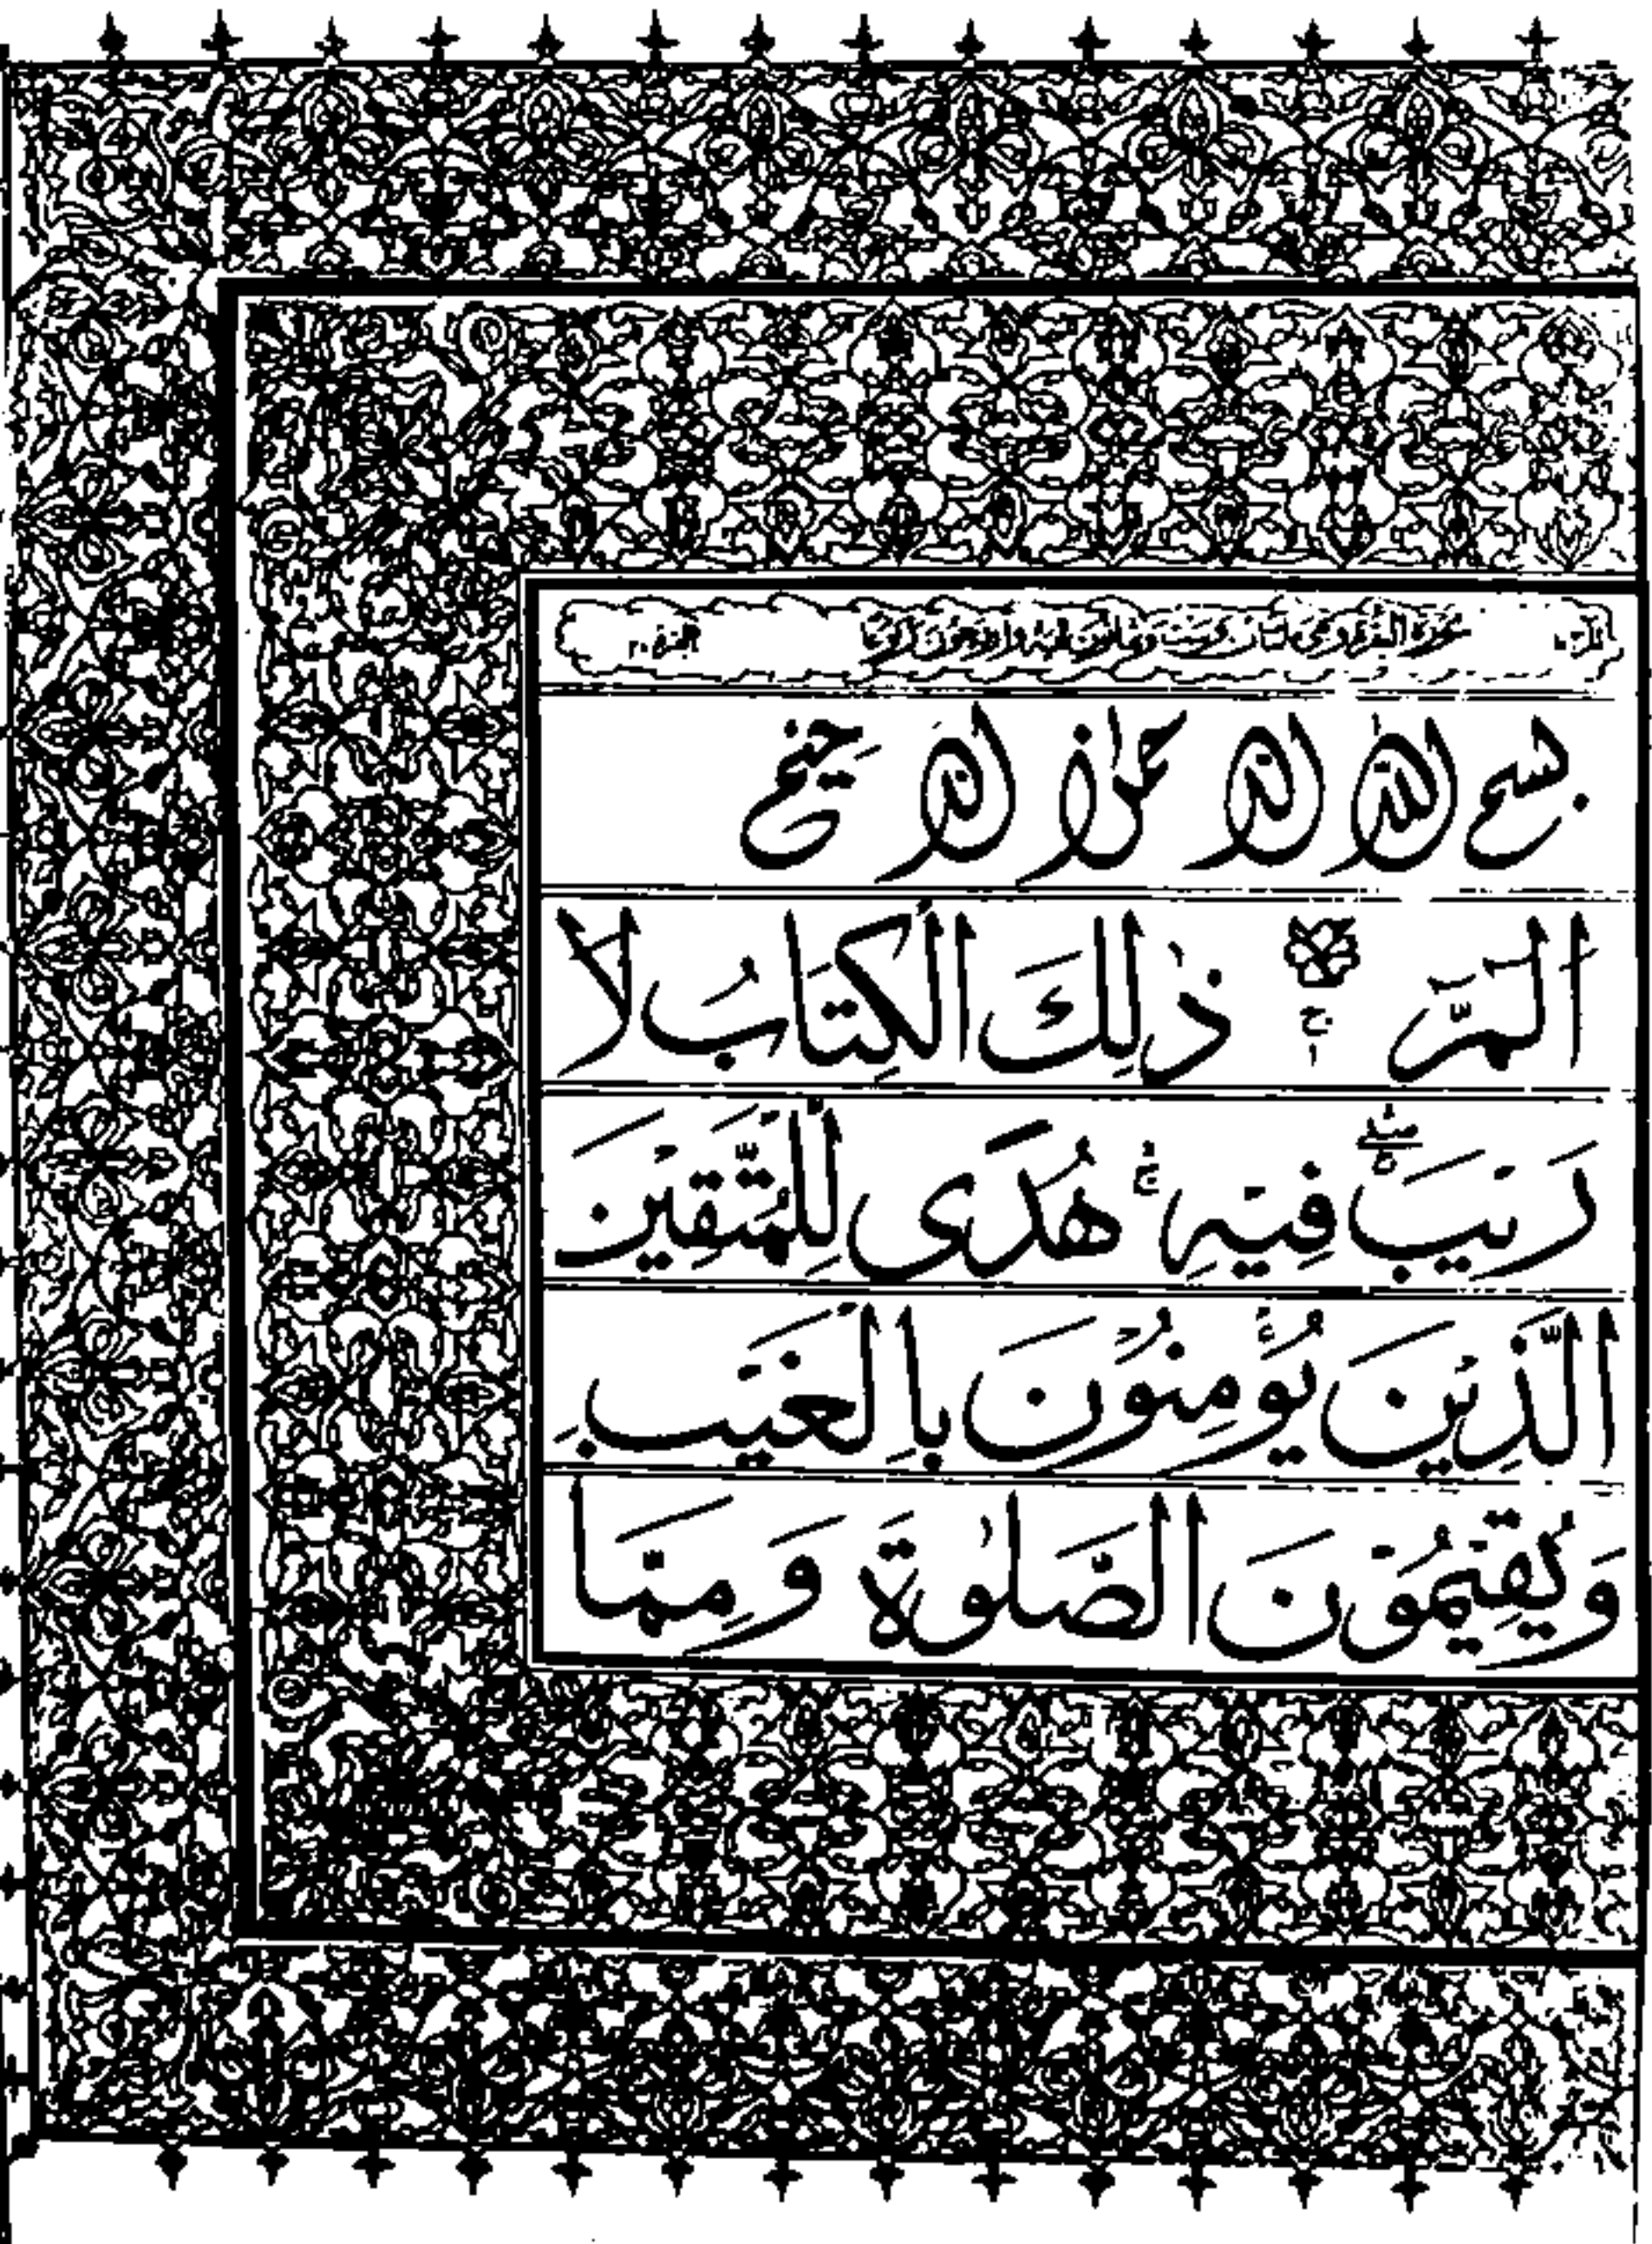 بسم الله الرحمن الرحيم
الٓمّٓ ج ١ ذٰلِكَ الْكِتَابُ لَا
رَيْبَ فِيْهِ ج هُدًى لِّلْمُتَّقِيْنَ
الَّذِيْنَ يُؤْمِنُوْنَ بِالْغَيْبِ
وَيُقِيْمُوْنَ الصَّلٰوةَ وَمِمَّا